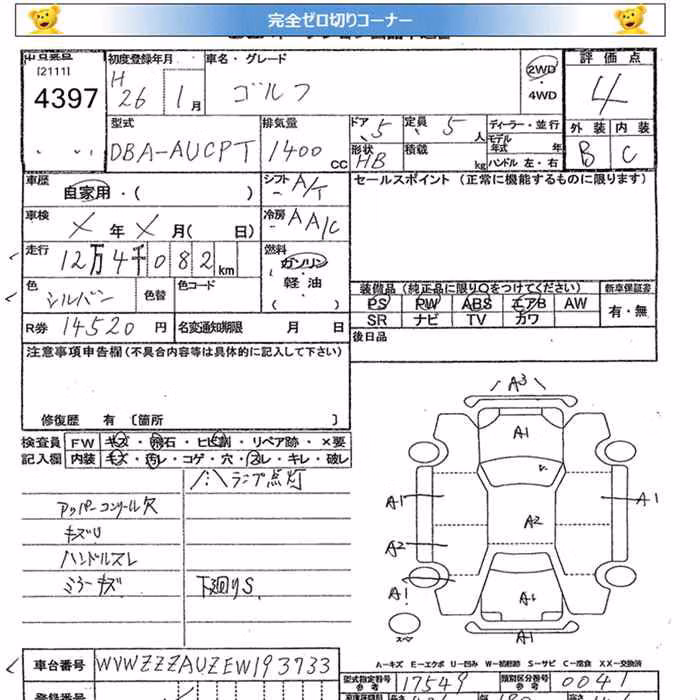 完全ゼロ切りコーナー
[2111]
4397
初度登録年月
H
26 1 月
車名・グレード
ゴルフ
2WD
・
4WD
評価点
4
外装 内装
B C
型式
DBA-AUCPT
排気量
1400 CC
ドア 5
形状 HB
定員 5 人
積載 kg
ディーラー・並行
モデル年式 年
ハンドル 左・右
車歴
自家用・( )
シフト A/T
車検
X 年 X 月( 日)
冷房 AA/C
走行
12万4千082km
燃料
ガソリン
軽油
( )
色
シルバー
色替
色コード
R券 14520 円
名変通知期限 月 日
セールスポイント (正常に機能するものに限ります)
装備品 (純正品に限り〇をつけてください)
新車保証書
PS PW ABS エアB AW
SR ナビ TV カワ
有・無
後日品
注意事項申告欄 (不具合内容等は具体的に記入して下さい)
修復歴 有 〔箇所 〕
検査員
記入欄
FW キズ・飛石・ヒビ割・リペア跡・×要
内装 キズ・汚レ・コゲ・穴・スレ・キレ・破レ
ランプ点灯
アッパーコンソール欠
キズU
ハンドルスレ
ミラーキズ
下廻りS
A3
A1
A1
A1
A2
A2
A1
A1
A1
スペア
A-キズ E-エクボ U-凹み W-補修跡 S-サビ C-腐食 XX-交換済
車台番号
WVWZZZAUZEW193733
型式指定番号
参考
17549
類別区分番号
参考
0041
登録番号